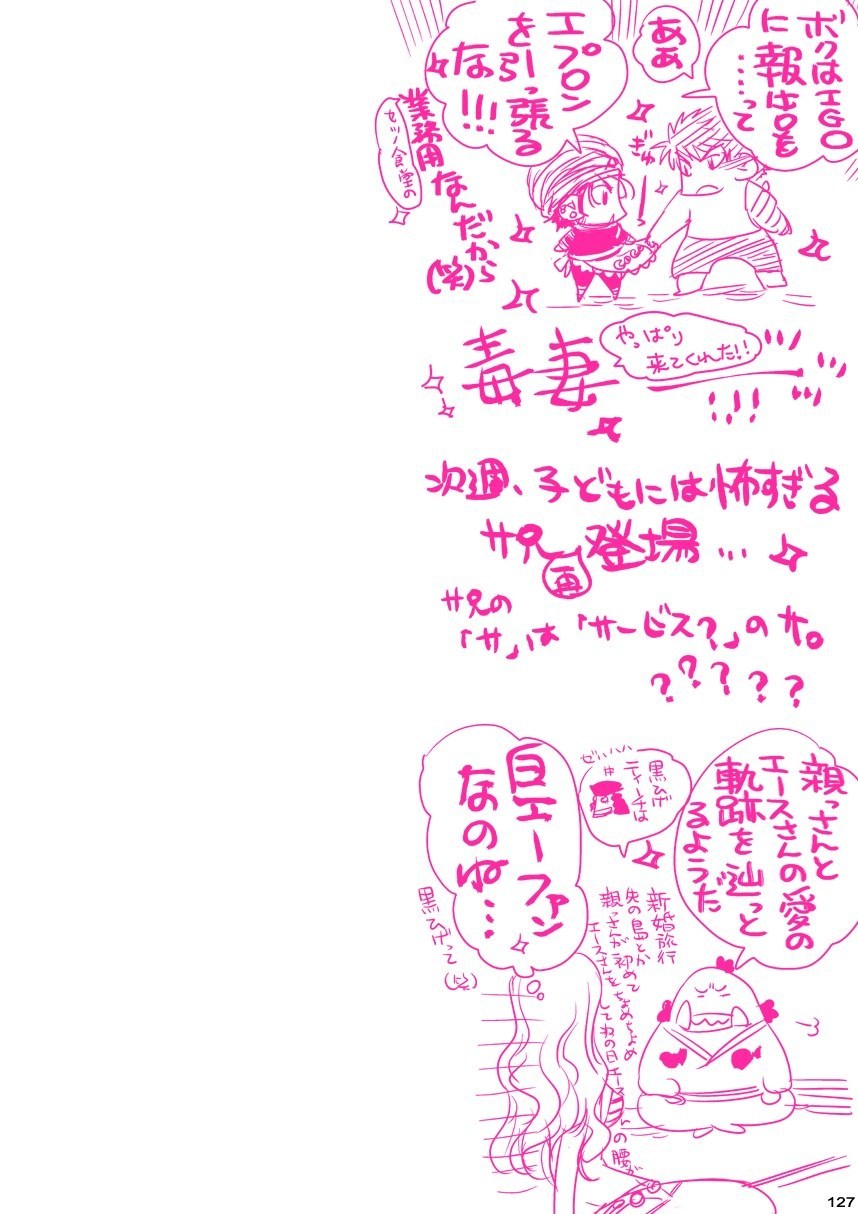 ボクはIGO
に報告を
……って
あぁ
エプロン
を引っ張る
な!!!
ぎゅ
COCO
業務用なんだから
(笑)
セツノ食堂の
毒妻
やっぱり
来てくれた!!
次週、子どもには怖すぎる
サ兄再登場…
サ兄の
「サ」は「サービス?」のサ。
?????
親っさんと
エースさんの愛の
軌跡を辿っと
るようだ
黒ひげ
ティーチは
ゼハハハ
白エーファン
なのね…
黒ひげって
(笑)
新婚旅行
先の島とか
親っさんが初めて
エースさんをちょめちょめ
してねの日エースさんの腰が
127